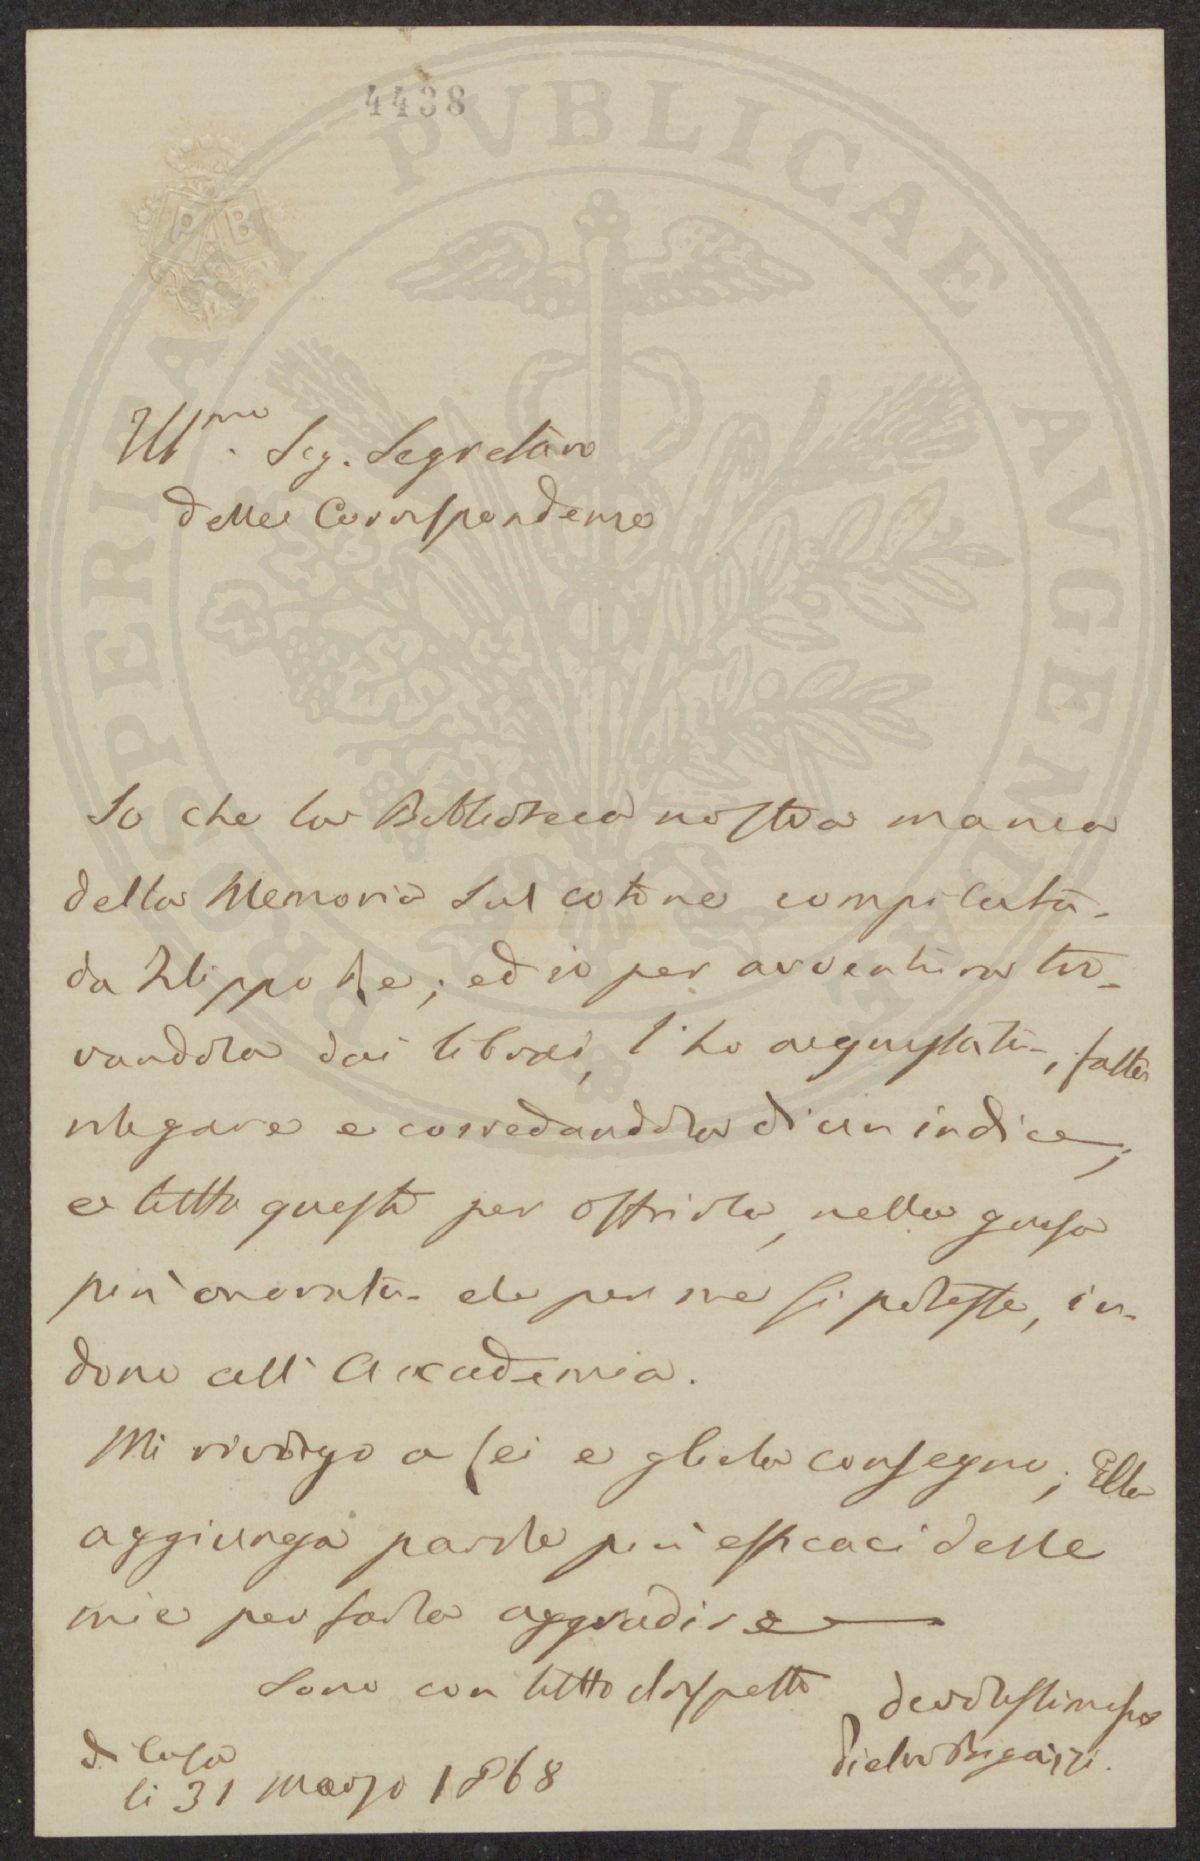 4438
PROSPERITATI PVBLICAE AVGENDAE
P B
Ill.mo Sig. Segretario
delle Corrispondenze
So che la Biblioteca nostra manca
della Memoria sul cotone compilata
da Filippo Re; ed io per avventura tro-
vandola dai librai, l'ho acquistata, fatta
rilegare e corredandola di un indice,
e tutto questo per offrirla, nella guisa
più onorata che per me si potesse, in
dono all' Accademia.
Mi rivolgo a Lei e gliela consegno; Ella
aggiunga parole più efficaci delle
mie per farla aggradire
Sono con tutto il rispetto devotissimo
Pietro Bigazzi.
di Casa
li 31 Marzo 1868